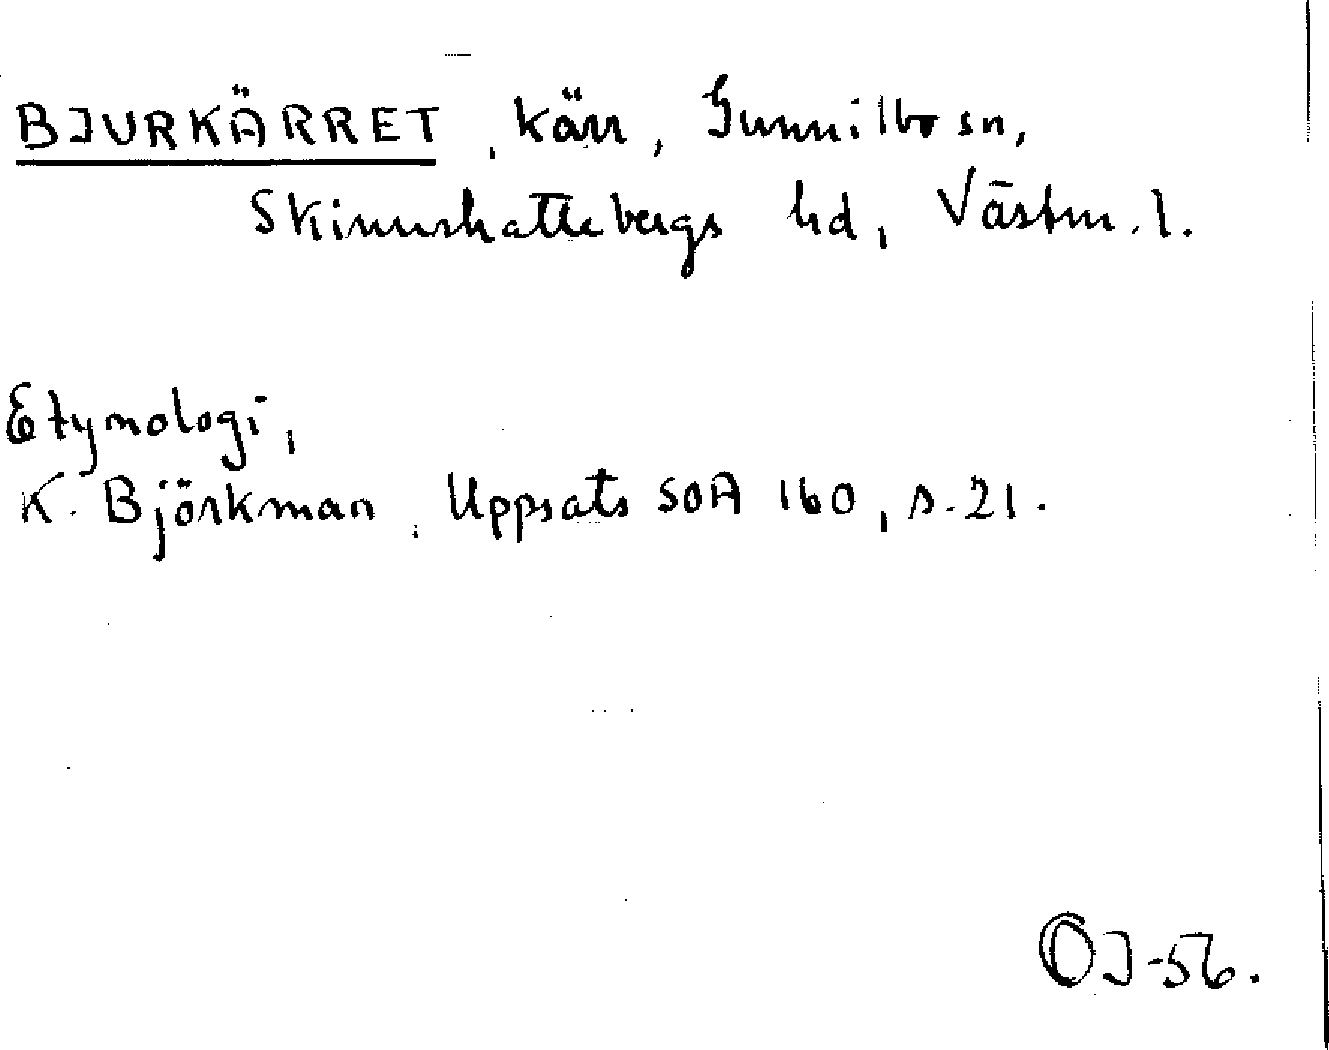 BJURKÄRRET, kärr, Gunnilbo sn,
Skinnskattebergs hd, Västm. l.
Etymologi,
K. Björkman, Uppsats SOA 160, s. 21.
OJ-56.